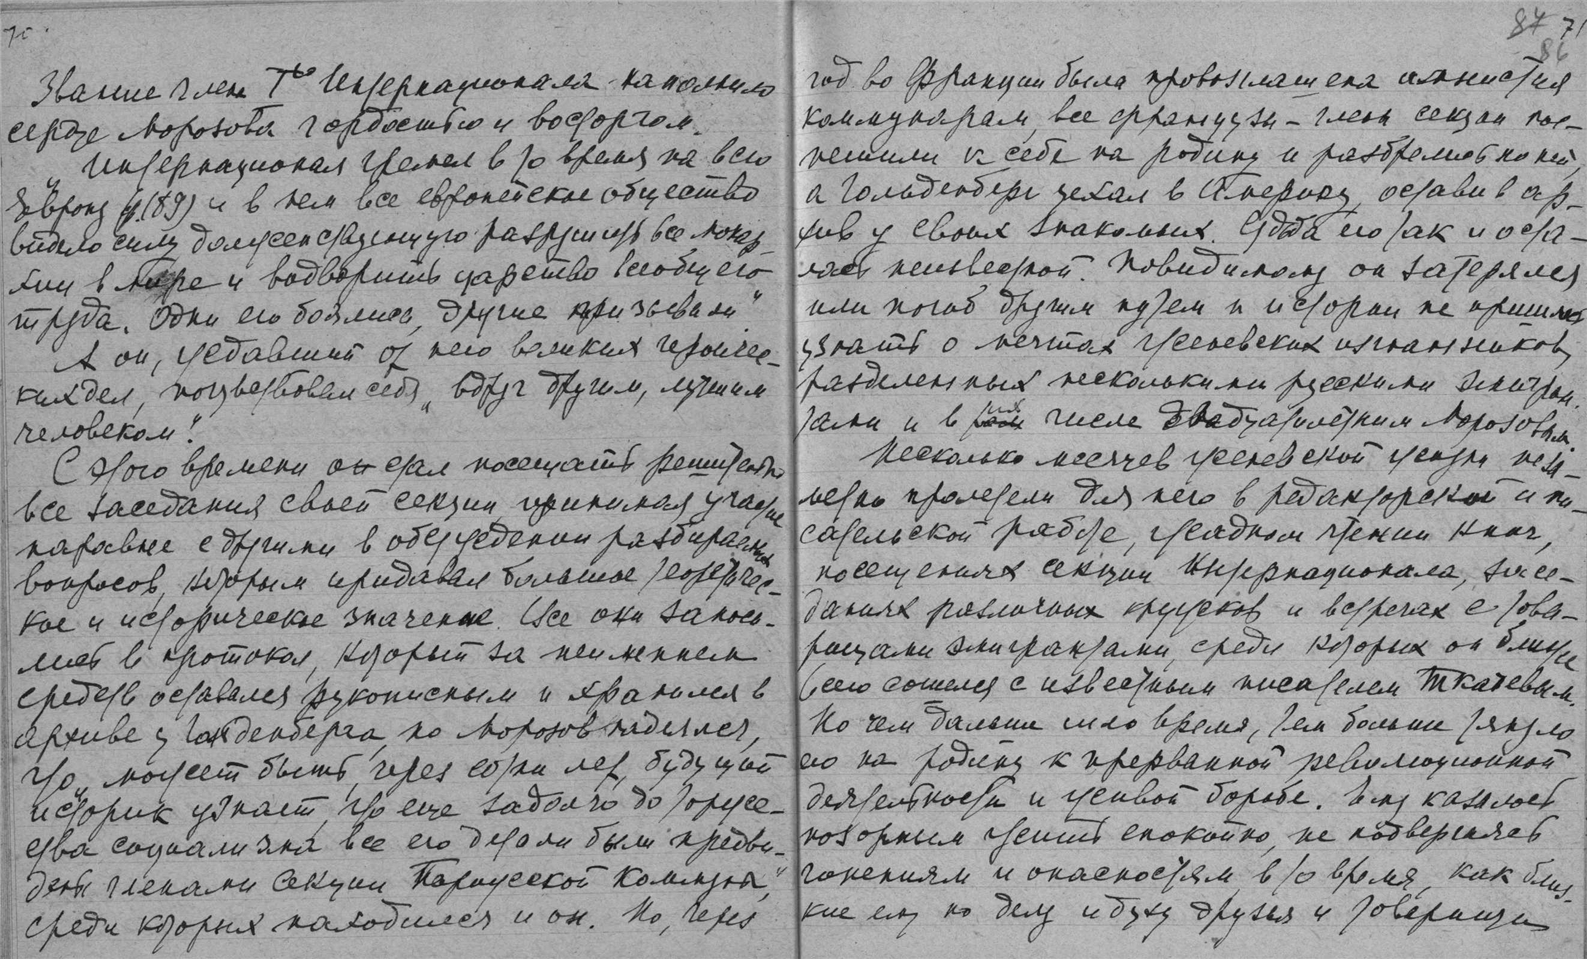 70.
Звание члена Iго Интернационала наполнило
сердце Морозова гордостью и восторгом.
„Интернационал гремел в то время на всю
Европу (89) и в нем все европейское общество
видело силу долженствующую разрушить все монар-
хии в мире и водворить царство всеобщего
труда. Одни его боялись, другие призывали"
А он, ждавший от него великих героичес-
ких дел, почувствовал себя „вдруг другим, лучшим
человеком".
С этого времени он стал посещать решительно
все заседания своей секции принимая участие
наравне с другими в обсуждении разбираемых
вопросов, которым придавал большое теоретичес-
кое и историческое значение. Все они заноси-
лись в протокол, который за неимением
средств оставался рукописным и хранился в
архиве у Гольденберга, но Морозов надеялся,
что „может быть, через сотни лет, будущий
историк узнает, что еще задолго до торже-
ства социализма все его детали были предви-
дены членами секции Парижской коммуны,"
среди которых находился и он. Но, через
87 71
86
год во Франции была провозглашена амнистия
коммунарам, все французы – члены секции пос-
пешили к себе на родину и разбрелись по ней,
а Гольденберг уехал в Америку, оставив ар-
хив у своих знакомых. Судьба его так и оста-
лась неизвестной. Повидимому он затерялся
или погиб другим путем и истории не пришлось
узнать о мечтах женевских изгнанников,
разделенных несколькими русскими эмигран-
тами и в их числе двадцатилетним Морозовым.
Несколько месяцев женевской жизни неза-
метно пролетели для него в редакторской и пи-
сательской работе, жадном чтении книг,
посещениях секции Интернационала, засе-
даниях различных кружков и встречах с това-
рищами эмигрантами, среди которых он ближе
всего сошелся с известным писателем Ткачевым.
Но чем дальше шло время, тем больше тянуло
его на родину к прерванной революционной
деятельности и живой борьбе. Ему казалось
позорным жить спокойно, не подвергаясь
гонениям и опасностям, в то время, как близ-
кие ему по делу и духу друзья и товарищи